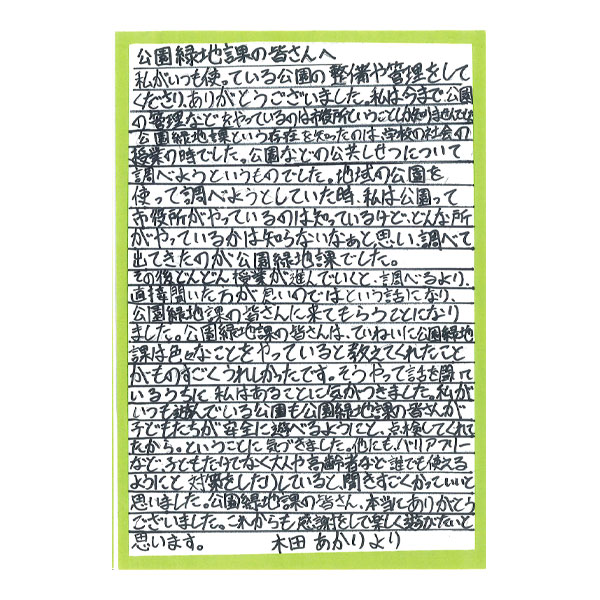 公園緑地課の皆さんへ
私がいつも使っている公園の整備や管理をして
くださりありがとうございました。私は今まで公園
の管理などをやっているのは市役所ということしか知りませんでした
公園緑地課という存在を知ったのは、学校の社会の
授業の時でした。公園などの公共しせつについて
調べようというものでした。地域の公園を
使って調べようとしていた時、私は公園って
市役所がやっているのは知っているけど、どんな所
がやっているかは知らないなぁと思い、調べて
出てきたのが公園緑地課でした。
その後どんどん授業が進んでいくと、調べるより、
直接聞いた方が良いのではという話になり、
公園緑地課の皆さんに来てもらうことになり
ました。公園緑地課の皆さんは、ていねいに公園緑地
課は色々なことをやっていると教えてくれたこと
がものすごくうれしかったです。そうやって話を聞いて
いるうちに、私はあることに気がつきました。私が
いつも遊んでいる公園も公園緑地課の皆さんが
子どもたちが安全に遊べるようにと、点検してくれ
たから。ということに気づきました。他にも、バリアフリー
など子どもたけでなく大人や高齢者など誰でも使える
ようにと対策をしたりしていると、聞きすごくかっていいと
思いました。公園緑地課の皆さん、本当にありがとう
ございました。これからも感謝をして楽しく遊びたいと
思います。 木田 あかりより